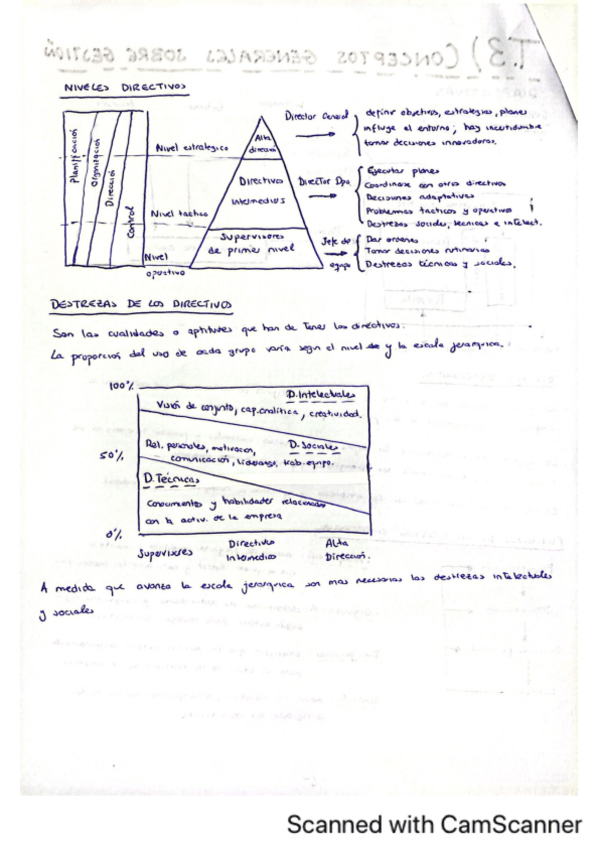 T.3) CONCEPTOS GENERALES SOBRE GESTIÓN
NIVELES DIRECTIVOS
Planificación
Organización
Dirección
Control
Nivel estratégico
Nivel táctico
Nivel
operativo
Alta
dirección
Directivos
Intermedios
Supervisores
de primer nivel
Director General
definir objetivos, estrategias, planes
influye el entorno; hay incertidumbre
tomar decisiones innovadoras.
Director Dpa.
Ejecutar planes
Coordinarse con otros directivos
Decisiones adaptativas
Problemas tacticos y operativos
Destrezas sociales, técnicas e intelect.
Jefe de
equipo
Dar ordenes
Tomar decisiones rutinarias
Destrezas técnicas y sociales.
DESTREZAS DE LOS DIRECTIVOS
Son las cualidades o aptitudes que han de tener los directivos.
La proporción del uso de cada grupo varía según el nivel y la escala jerarquica.
100%
50%
0%
D. Intelectuales
Visión de conjunto, cap. analítica, creatividad.
Rel. personales, motivacion,
D. Sociales
comunicación, liderazgo, trab. equipo.
D. Técnicas
Conocimientos y habilidades relacionadas
con la activ. de la empresa
Supervisores
Directivos
Intermedios
Alta
Dirección.
A medida que avanza la escala jerarquica son mas necesarias las destrezas intelectuales
y sociales
Scanned with CamScanner